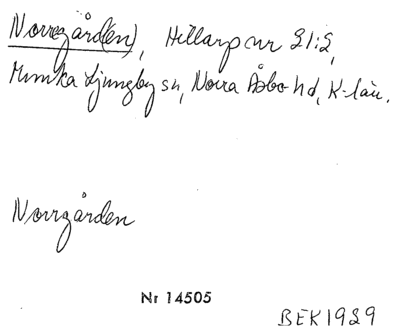 Norregård(en), Hillarp nr 21:2,
Munka Ljungby sn, Norra Åsbo hd, K-län.
Norrgården
Nr 14505
BEK1929